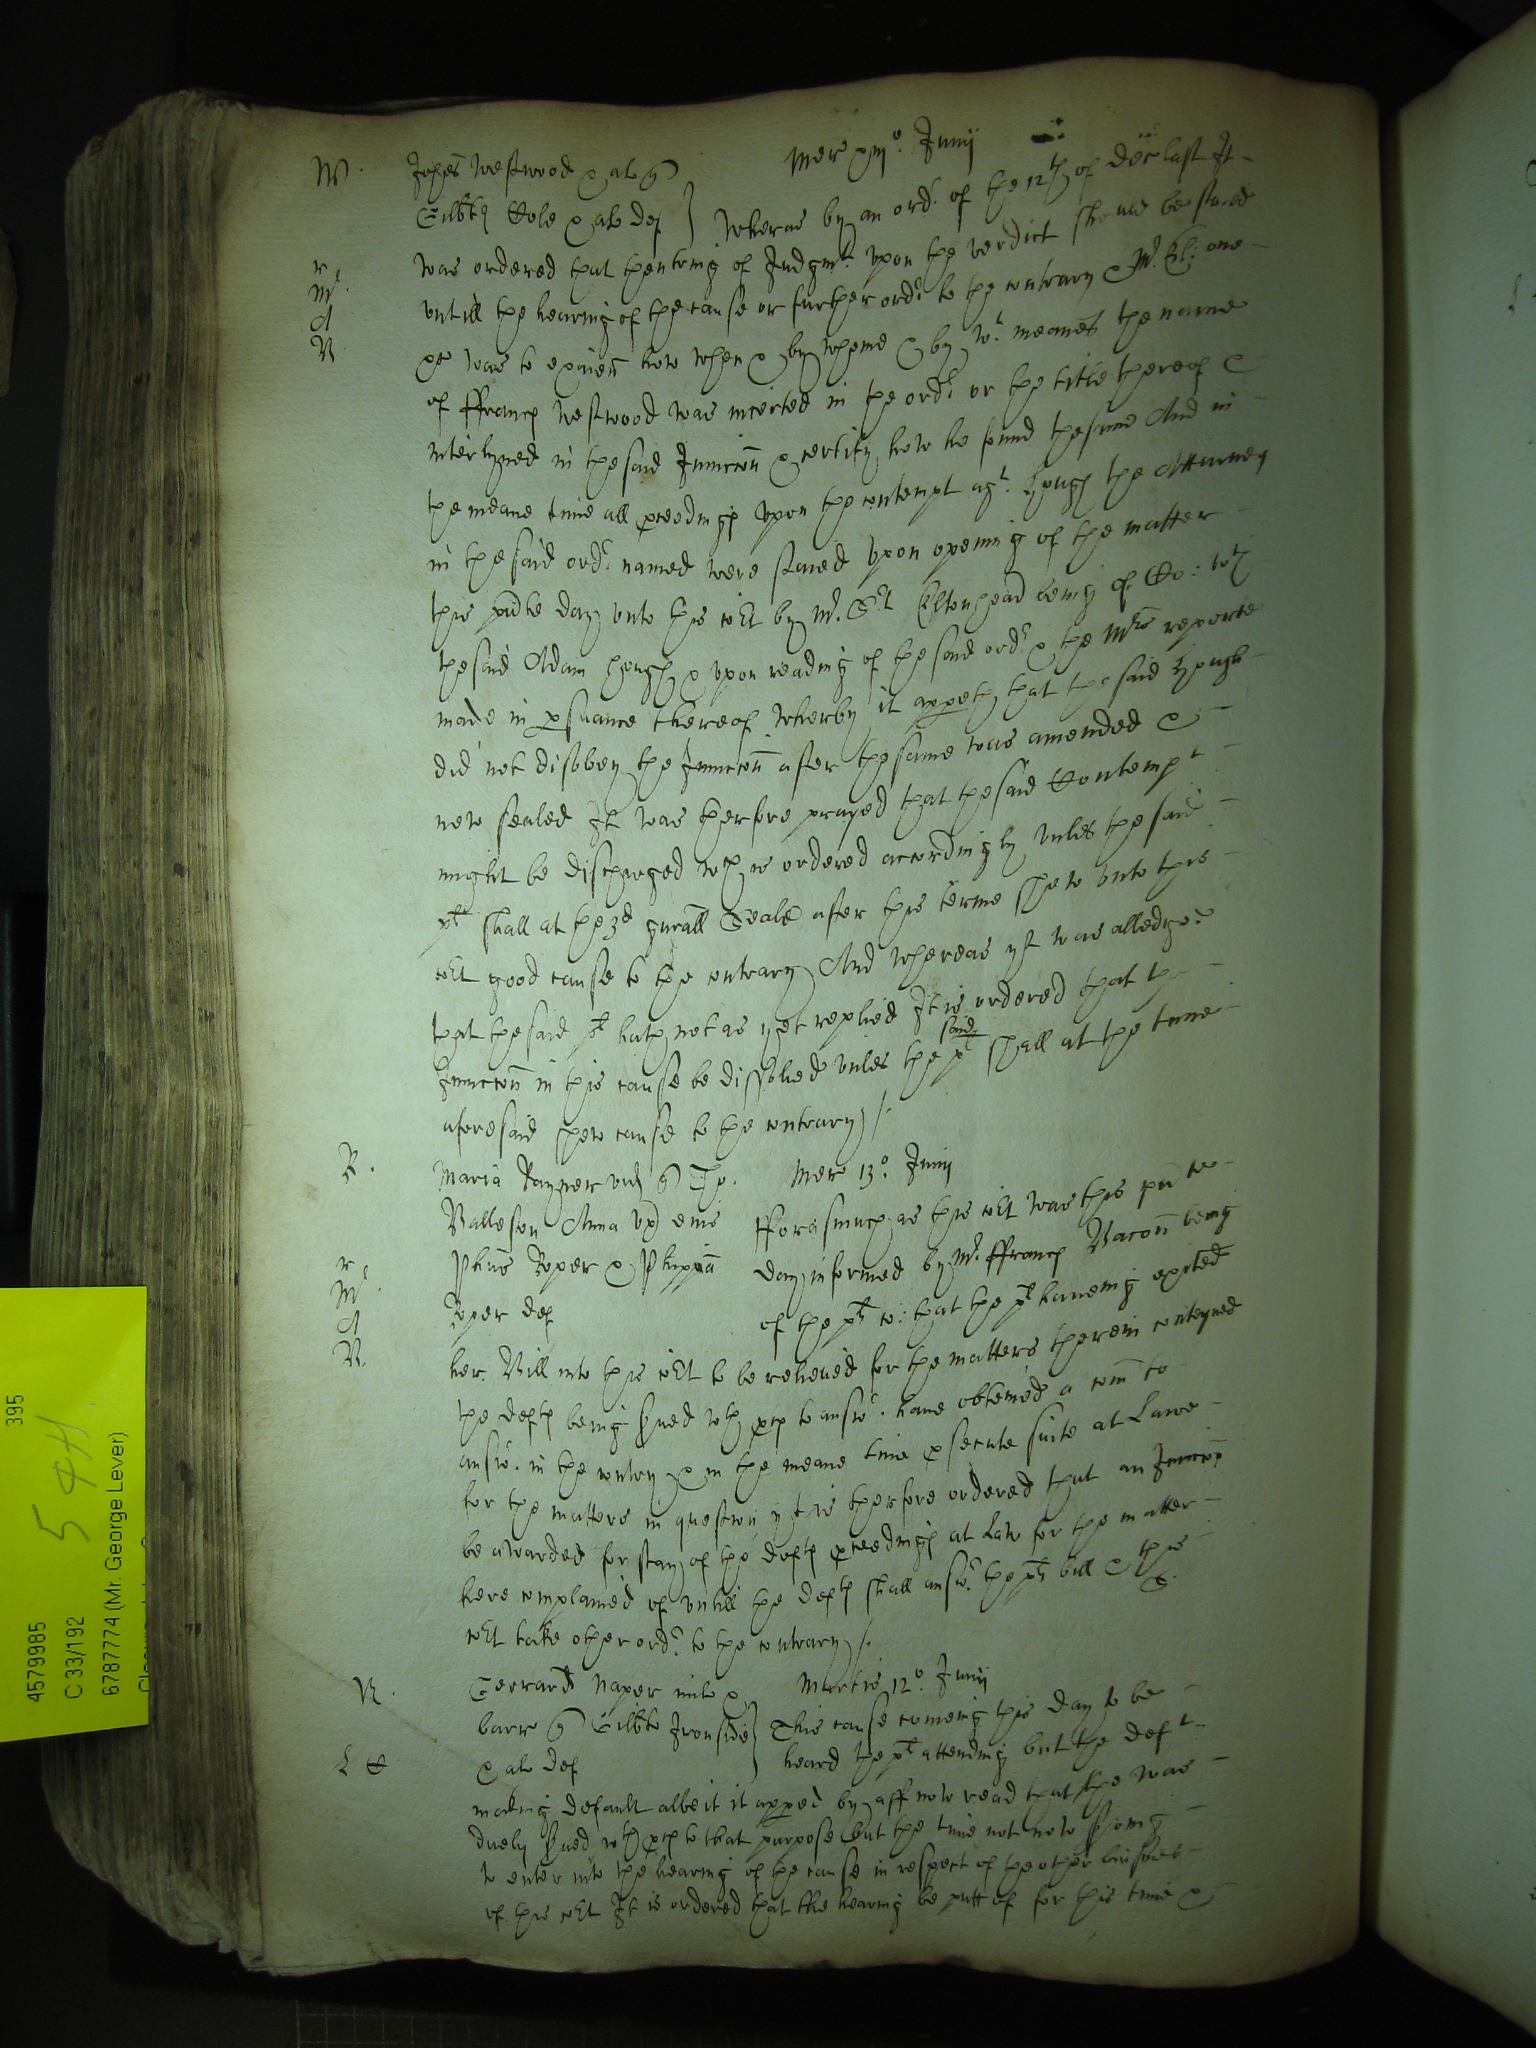 Mer xiijo. Junij
W. Johes Westwood & al quer
Gilbtq Cole & al def } Wheras by an ordr. of the 12th of Decr last It
was ordered that thentring of Judgmt. upon the verdict should be staied
r untill the hearing of the cause or further ordr. to the contrary & Mr.
Mr. was to exaien how when & by whome & by wt. meanes the name
A of ffrancs Westwood was incerted in the ordr. or the title thereof &
B interlyned in the said Iniuncon & certify how he found the same And in
the meane time all pceedings upon the contempt agt. Hough the Atturney
in the said ordr. named were staied upon opening of the matter
this pnte day unto this cort by Mr. Elton head being of Co: wth
the said Adam Hough & upon reading of the said ordr. & the Mrs reporte
made in psuance thereof wherby it appeth that the said Hough
did not disobey the Iniuncon after the same was amended &
new sealed It was therfore prayed that the said Contempt
might be discharged wch is ordered accordingly unles the said
plt shall at the 3d gnrall Seale after this terme shew unto this
cort good cause to the contrary And whereas yt was alledged
that the said plt hath not as yet replied It is ordered that the
said
Iniuncon in this cause be dissolved unles the plt shall at the time
aforesaid shew cause to the contrary /.
R. Maria Rayner vid quer Tho. Mer 13o. Junij
Balleson Anna ux eius fforasmuch as this cort was this pnte
r Phus Roper & Phippa day informed by Mr. ffrancs Bacon being
Mr. Roper def of the plts co: that the plt haueing exited
A
B. her Bill into this cort to be relieued for the matters therein conteyned
the defts being sued wth pces to answr. haue obteined a comn to
answr. in the contry & in the meane time psecute suite at Lawe
for the matters in question yt is therfore ordered that an Iniuncon
be awarded for stay of the defts pceedings at Law for the matter
here complained of untill the defts shall answr. the plts bill & this
cort take other ordr. to the contrary /.
N. Gerrard Naper milt & Martis 12o. Junij
barr quer Gilbto Ironside } This cause comeing this day to be
L & al def heard the plt attending but the deft
making default albeit it apped by aff now read that he was
duely sued wth pces to that purpose but the time not now
to enter into the hearing of the cause in respect of the other busines
of this cort It is ordered that the hearing be putt of for this time &
4579985
C 33/192
6787774 (Mr. George Lever)
395